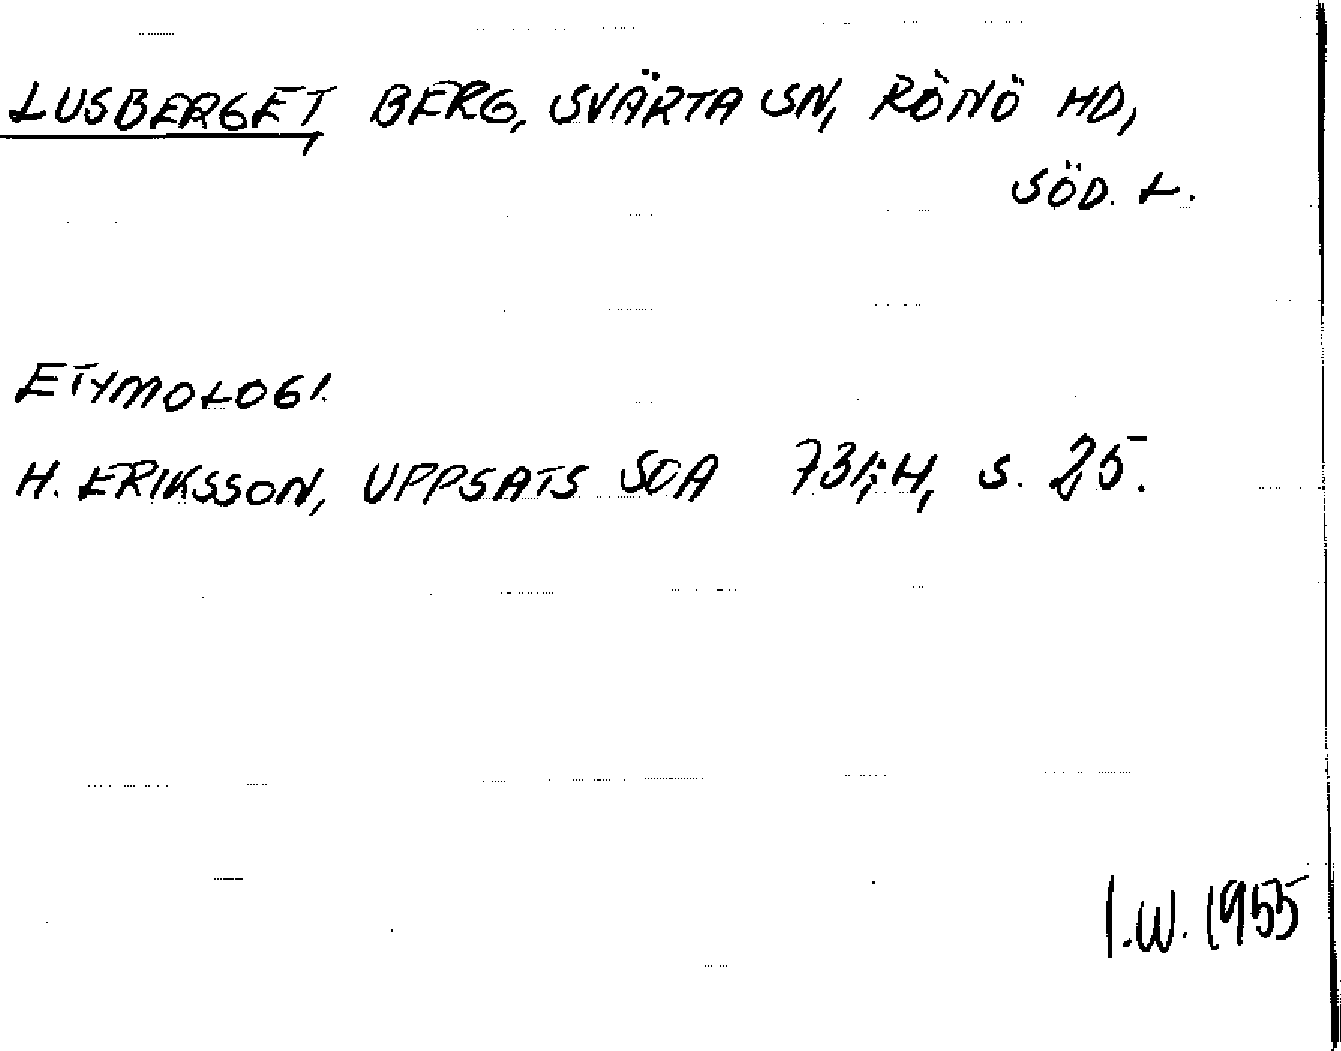 LUSBERGET, BERG, SVÄRTA SN, RÖNÖ HD,
SÖD. L.
ETYMOLOGI.
H. ERIKSSON, UPPSATS SOA 731;H, S. 25.
I.W. 1955